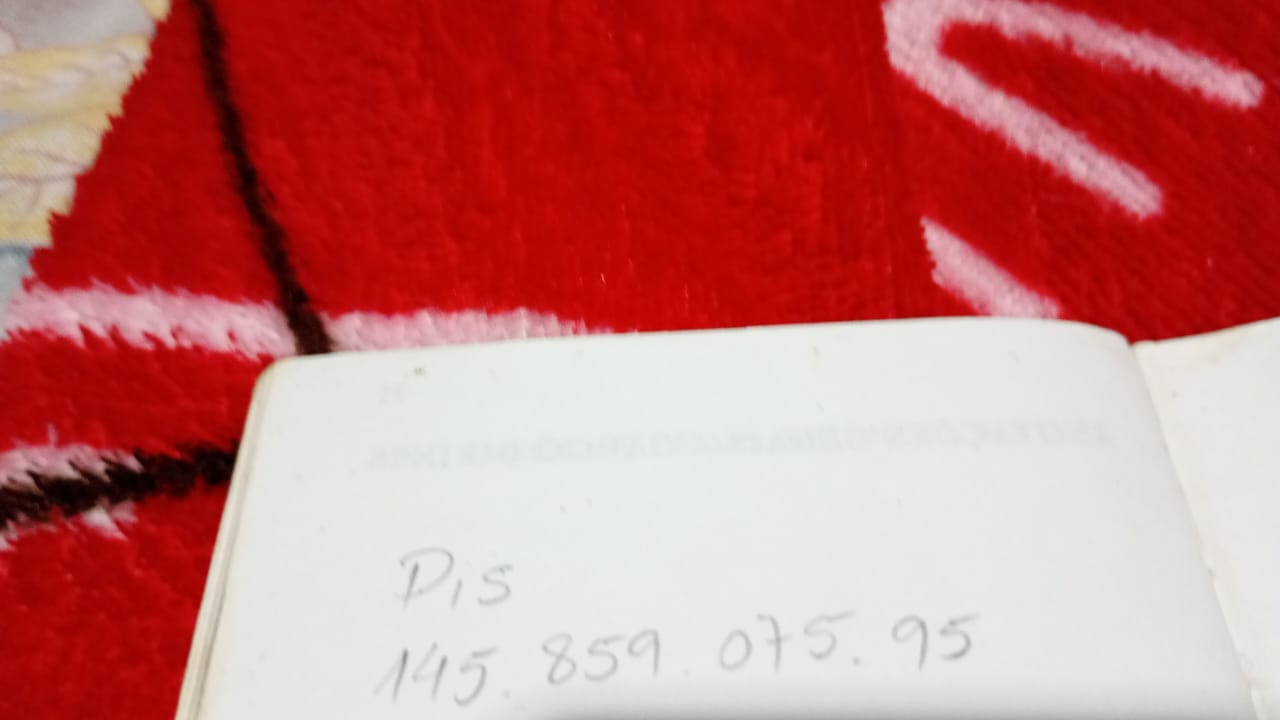 Pis
145.859.075.95